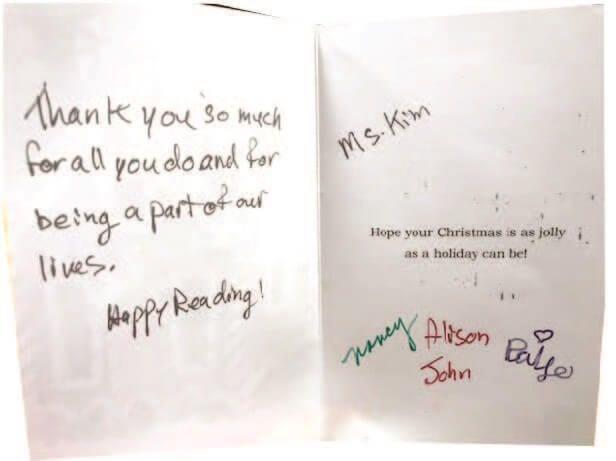 Thank you so much
for all you do and for
being a part of our
lives.
Happy Reading!
Ms. Kim
Hope your Christmas is as jolly
as a holiday can be!
Nancy Alison
John
Paige